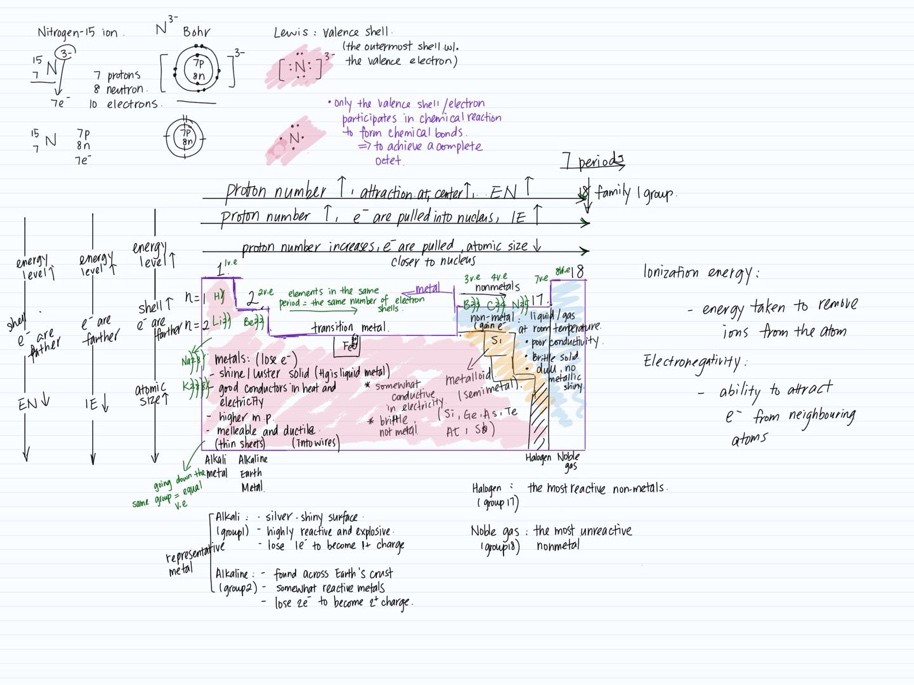 Nitrogen-15 ion.
N³⁻ Bohr
¹⁵₇N³⁻
7e⁻
7 protons
8 neutron.
10 electrons.
7p
8n
3-
Lewis: valence shell.
(the outermost shell w/.
the valence electron)
[:N:]³⁻
¹⁵₇N
7p
8n
7e⁻
7p
8n
N
• only the valence shell/electron
participates in chemical reaction
to form chemical bonds.
⇒ to achieve a complete
octet.
7 periods
18 family/group.
proton number ↑, attraction at center↑, EN ↑
proton number ↑, e⁻ are pulled into nucleus, IE ↑
proton number increases, e⁻ are pulled, atomic size ↓
closer to nucleus
energy
level↑
shell↑
e⁻ are
farther
EN↓
energy
level↑
e⁻ are
farther
IE↓
energy
level↑
shell↑
e⁻ are
farther
atomic
size↑
1 1v.e
2 2v.e
elements in the same
period = the same number of electron
shells.
metal
3v.e 4v.e
nonmetals
7v.e
17
8v.e 18
n=1 H)
n=2 Li)) Be))
B)) C)) N))
transition metal.
Fe
Na
K
non-metal:
(gain e⁻)
liquid/gas
at room temperature.
• poor conductivity.
• brittle solid
• dull, no
metallic
shiny
Si
metals: (lose e⁻)
- shine/luster solid (Hg is liquid metal)
- good conductors in heat and
electricity
- higher m.p.
- melleable and ductile.
(thin sheets) (into wires)
* somewhat
conductive
in electricity.
* brittle
not metal
metalloid
(semimetal).
(Si, Ge, As, Te
At, Sb)
going down the
same group = equal
v.e
Alkali
metal
Alkaline
Earth
Metal.
Halogen
Noble
gas
representative
metal
Alkali: - silver-shiny surface.
(group1) - highly reactive and explosive.
- lose 1e⁻ to become 1+ charge
Alkaline: - found across Earth's crust
(group2) - somewhat reactive metals
- lose 2e⁻ to become 2⁺ charge.
Halogen: the most reactive non-metals.
(group 17)
Noble gas: the most unreactive
(group18) nonmetal
Ionization energy:
- energy taken to remove
ions from the atom
Electronegativity:
- ability to attract
e⁻ from neighbouring
atoms